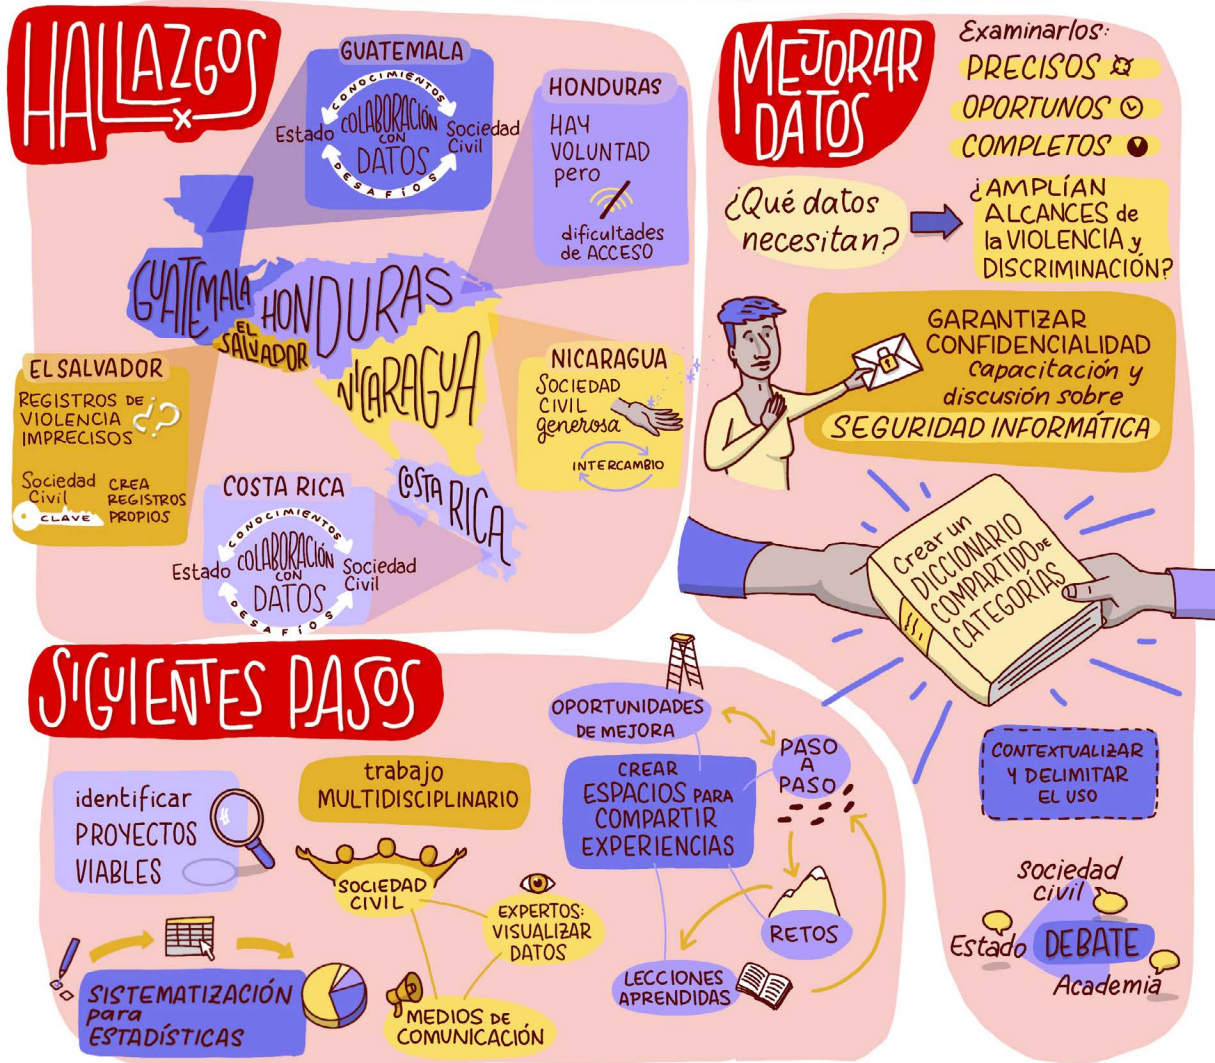 HALLAZGOS
GUATEMALA
CONOCIMIENTOS
Estado
COLABORACIÓN
CON
DATOS
Sociedad
Civil
DESAFÍOS
HONDURAS
HAY
VOLUNTAD
pero
dificultades
de ACCESO
GUATEMALA
HONDURAS
EL
SALVADOR
NICARAGUA
COSTA RICA
EL SALVADOR
REGISTROS DE
VIOLENCIA
IMPRECISOS
¿?
Sociedad
Civil
CLAVE
CREA
REGISTROS
PROPIOS
NICARAGUA
SOCIEDAD
CIVIL
generosa
INTERCAMBIO
COSTA RICA
CONOCIMIENTOS
Estado
COLABORACIÓN
CON
DATOS
Sociedad
Civil
DESAFÍOS
MEJORAR
DATOS
Examinarlos:
PRECISOS
OPORTUNOS
COMPLETOS
¿Qué datos
necesitan?
¿AMPLÍAN
ALCANCES de
la VIOLENCIA y
DISCRIMINACIÓN?
GARANTIZAR
CONFIDENCIALIDAD
capacitación y
discusión sobre
SEGURIDAD INFORMÁTICA
Crear un
DICCIONARIO
COMPARTIDO DE
CATEGORÍAS
CONTEXTUALIZAR
Y DELIMITAR
EL USO
sociedad
civil
Estado
DEBATE
Academia
SIGUIENTES PASOS
identificar
PROYECTOS
VIABLES
trabajo
MULTIDISCIPLINARIO
SOCIEDAD
CIVIL
EXPERTOS:
VISUALIZAR
DATOS
MEDIOS DE
COMUNICACIÓN
SISTEMATIZACIÓN
para
ESTADÍSTICAS
OPORTUNIDADES
DE MEJORA
CREAR
ESPACIOS PARA
COMPARTIR
EXPERIENCIAS
PASO
A
PASO
RETOS
LECCIONES
APRENDIDAS